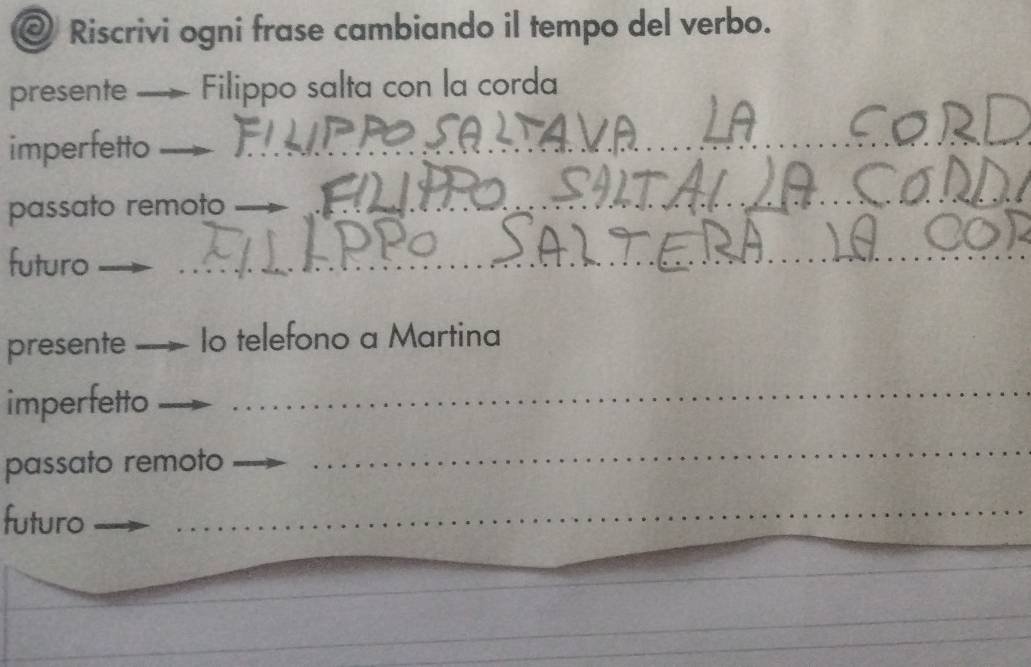 Riscrivi ogni frase cambiando il tempo del verbo.
presente → Filippo salta con la corda
imperfetto → FILIPPO SALTAVA LA CORD
passato remoto → FILIPPO SALTAI LA CORD
futuro → FILIPPO SALTERA LA COR
presente → Io telefono a Martina
imperfetto →
passato remoto →
futuro →